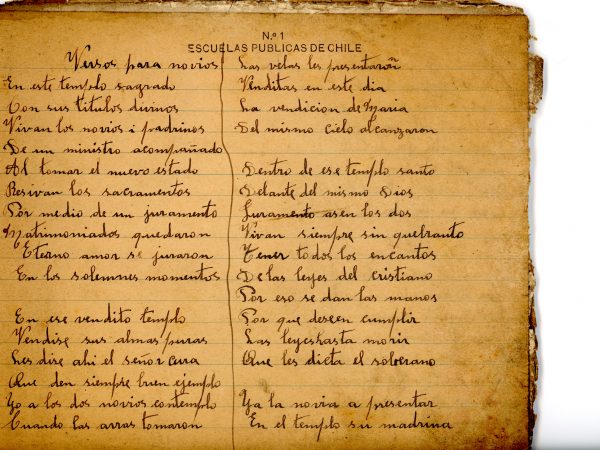 N.º 1
ESCUELAS PUBLICAS DE CHILE
Versos para novios
En este templo sagrado
Con sus titulos divinos
Vivan los novios i padrinos
De un ministro acompañado
Al tomar el nuevo estado
Resivan los sacramentos
Por medio de un juramento
Matrimoniados quedaron
Eterno amor se juraron
En los solemnes momentos
En ese vendito templo
Vendise sus almas purras
Les dise ahi el señor cura
Que den siempre buen ejemplo
Yo a los dos novios contemplo
Cuando las arras tomaron
Las velas les presentaron
Venditas en este dia
La vendicion de Maria
Del mismo cielo alcanzaron
Dentro de ese templo santo
Delante del mismo Dios
Juramento asen los dos
Vivan siempre sin quebranto
Tener todos los encantos
De las leyes del cristiano
Por eso se dan las manos
Por que deseen cumplir
Las leyes hasta morir
Que les dicta el soberano
Ya la novia a presentar
En el templo su madrina